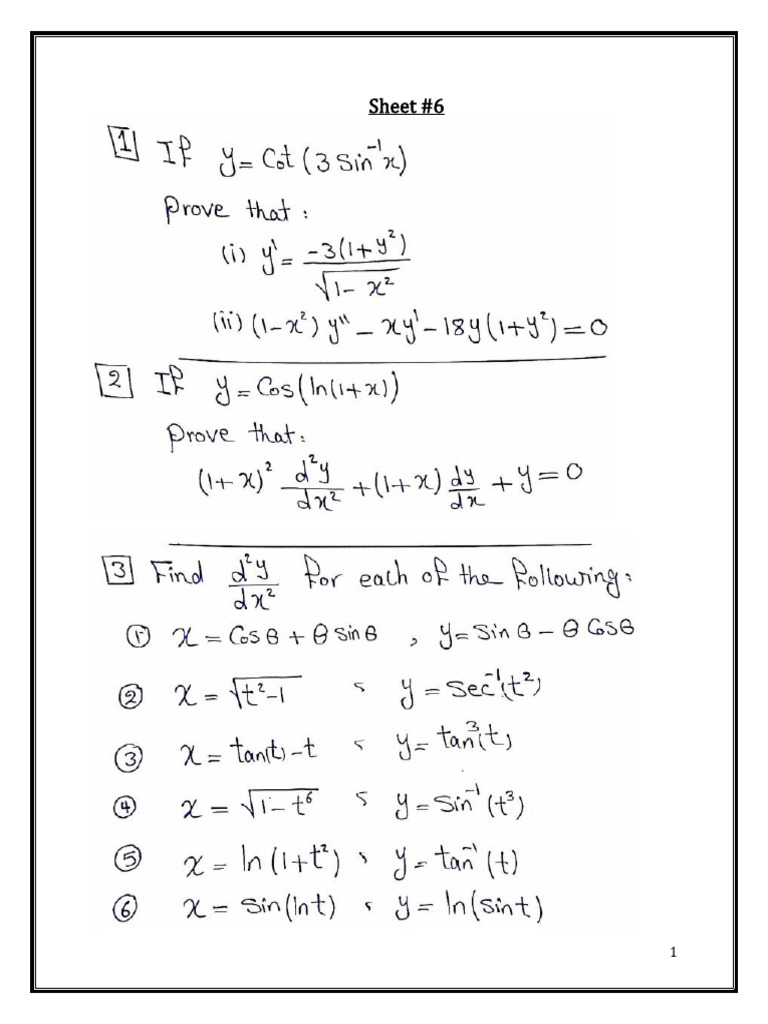 Sheet #6
1 If y = Cot(3 Sin⁻¹x)
Prove that:
(i) y' = -3(1+y²) / √(1-x²)
(ii) (1-x²) y'' - xy' - 18y(1+y²) = 0
2 If y = Cos(ln(1+x))
Prove that:
(1+x)² d²y/dx² + (1+x) dy/dx + y = 0
3 Find d²y/dx² for each of the following:
① x = Cosθ + θ sinθ , y = Sinθ - θ Cosθ
② x = √(t²-1) , y = Sec⁻¹(t²)
③ x = tan(t) - t , y = tan³(t)
④ x = √(1-t⁶) , y = Sin⁻¹(t³)
⑤ x = ln(1+t²) , y = tan⁻¹(t)
⑥ x = Sin(lnt) , y = ln(Sint)
1